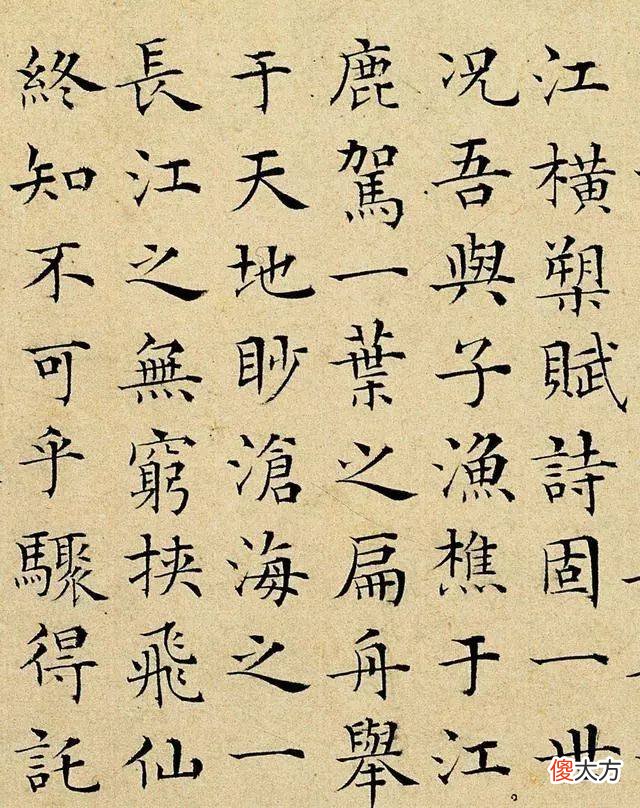 江橫槊賦詩固一世
况吾與子漁樵于江
鹿駕一葉之扁舟舉
于天地眇滄海之一
長江之無窮挾飛仙
終知不可乎驟得託
傻大方